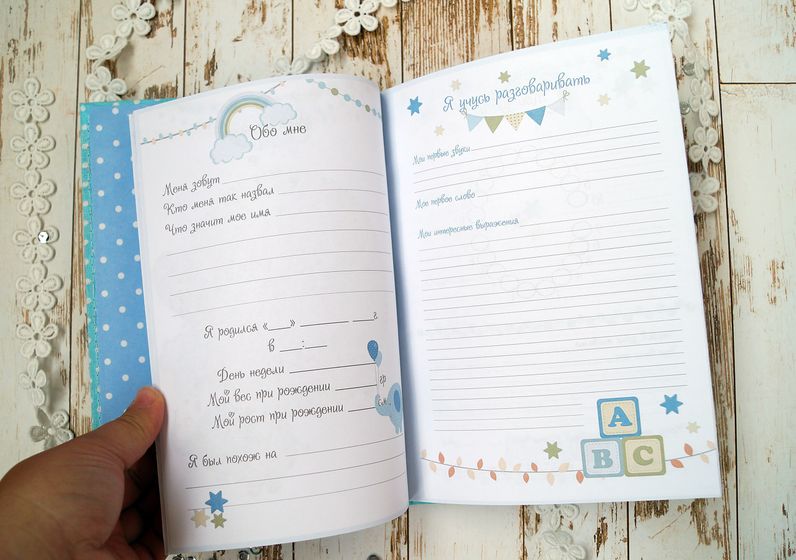 Обо мне
Меня зовут
Кто меня так назвал
Что значит мое имя
Я родился «___» ________ ___г
в ___:___
День недели
Мой вес при рождении ________ гр
Мой рост при рождении ________ см
Я был похож на
Я учусь разговаривать
Мои первые звуки
Мое первое слово
Мои интересные выражения
A
B C